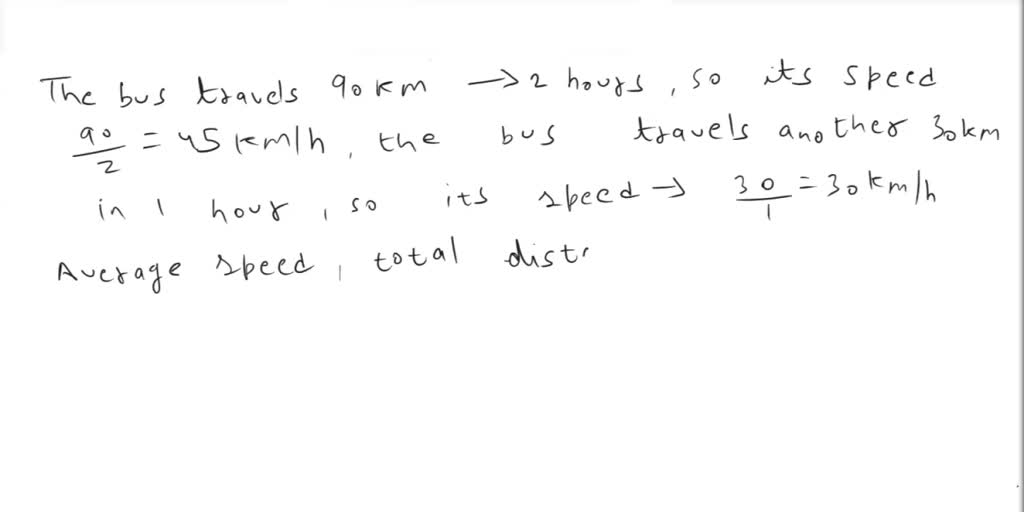 The bus travels 90 km → 2 hours, so its speed
90/2 = 45 km/h, the bus travels another 30km
in 1 hour, so its speed → 30/1 = 30 km/h
Average speed, total dist